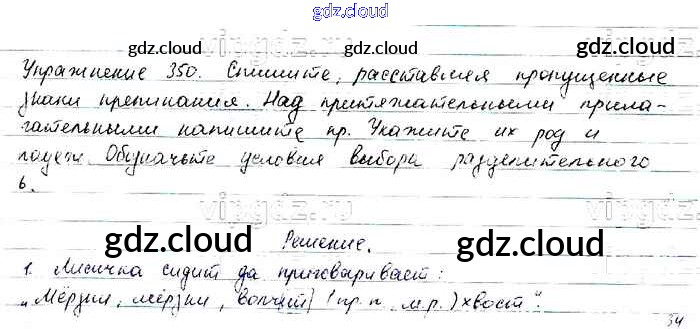 gdz.cloud
gdz.cloud gdz.cloud
Упражнение 350. Спишите, расставляя пропущенные
знаки препинания. Над притяжательными прила-
гательными напишите пр. Укажите их род и
падеж. Обозначьте условия выбора разделительного
ь.
gdz.cloud gdz.cloud
Решение.
gdz.cloud
1. Лисичка сидит да приговаривает:
„Мёрзни, мёрзни, волчий (пр. п. м.р.) хвост".
34